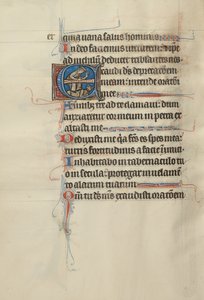 quia uana salus hominis
In deo faciemus uirtutem: et ipse
ad nichilum deducet tribulantes nos
Exaudi ds deprecationem
meam: intende orationi
A finibz terre ad te clamaui: dum
anxiaretur cor meum in petra ex
altasti me
Deduxisti me qa fcs es spes mea:
turris fortitudinis a facie inimici
Inhabitabo in tabernaculo tuo
in secula: protegar in uelamen
to alarum tuarum
Qm tu ds ms exaudisti orationem